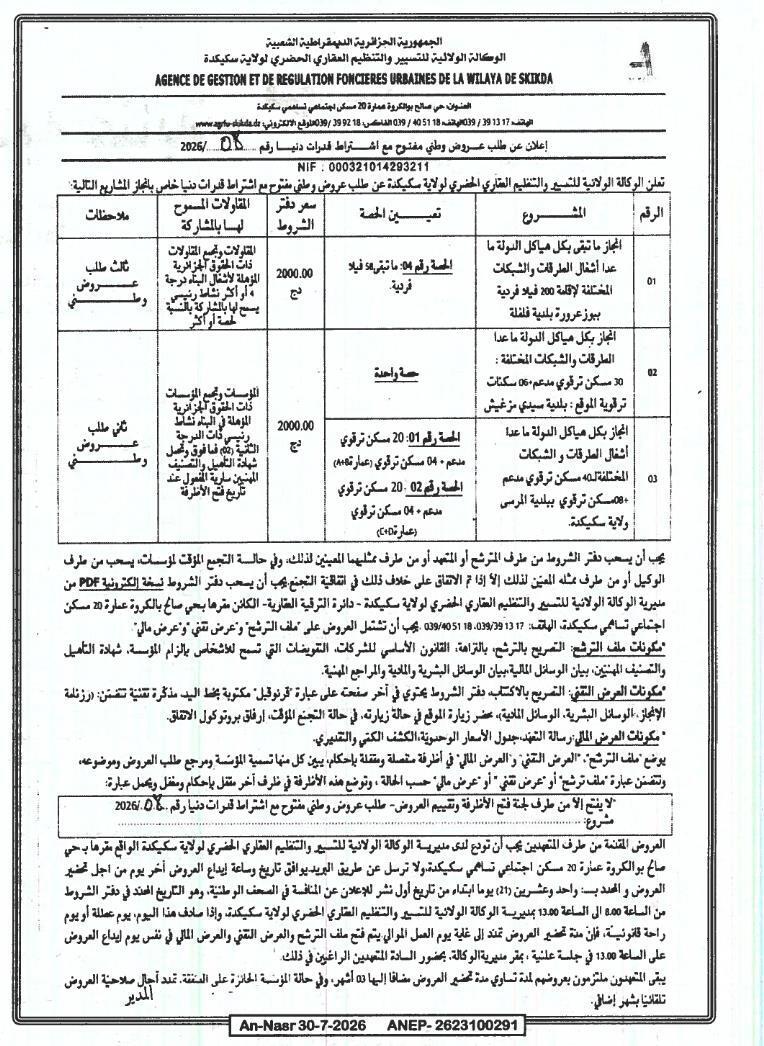 الجمهورية الجزائرية الديمقراطية الشعبية
الوكالة الولائية للتسيير والتنظيم العقاري الحضري لولاية سكيكدة
AGENCE DE GESTION ET DE REGULATION FONCIERES URBAINES DE LA WILAYA DE SKIKDA
العنوان: حي صالح بوالكروة عمارة 20 مسكن اجتماعي تساهمي سكيكدة
الهاتف: 17 13 39 /039 الهاتف: 18 51 40 / 039 الفاكس: 18 92 39 /039 الموقع الالكتروني: www.agrfu-skikda.dz
إعلان عن طلب عروض وطني مفتوح مع اشتراط قدرات دنيا رقم 08 /2026
NIF : 000321014293211
تعلن الوكالة الولائية للتسيير والتنظيم العقاري الحضري لولاية سكيكدة عن طلب عروض وطني مفتوح مع اشتراط قدرات دنيا خاص بإنجاز المشاريع التالية:
الرقم
المشروع
تعيين الحصة
سعر دفتر الشروط
المقاولات المسموح لها بالمشاركة
ملاحظات
01
انجاز ما تبقى بكل هياكل الدولة ما
عدا أشغال الطرقات والشبكات
المختلفة لإقامة 200 فيلا فردية
ببوزعرورة بلدية فلفلة
الحصة رقم 04: ما تبقى 58 فيلا
فردية.
2000.00
دج
المقاولات وتجمع المقاولات
ذات الحقوق الجزائرية
المؤهلة لأشغال البناء درجة
4 أو أكثر نشاط رئيسي
يسمح لها بالمشاركة بالنسبة
لحصة أو أكثر
ثالث طلب
عروض
وطني
02
انجاز بكل هياكل الدولة ما عدا
الطرقات والشبكات المختلفة :
30 مسكن ترقوي مدعم+06 سكنات
ترقوية الموقع : بلدية سيدي مزغيش
حصة واحدة
03
انجاز بكل هياكل الدولة ما عدا
أشغال الطرقات و الشبكات
المختلفة لـ40 مسكن ترقوي مدعم
+08مسكن ترقوي ببلدية المرسى
ولاية سكيكدة.
الحصة رقم 01: 20 مسكن ترقوي
مدعم + 04 مسكن ترقوي (عمارةA+B)
الحصة رقم 02: 20 مسكن ترقوي
مدعم + 04 مسكن ترقوي
(عمارةC+D)
2000.00
دج
المؤسسات وتجمع المؤسسات
ذات الحقوق الجزائرية
المؤهلة في البناء نشاط
رئيسي ذات الدرجة
الثانية (02) فما فوق وتحمل
شهادة التأهيل والتصنيف
المهنيين سارية المفعول عند
تاريخ فتح الأظرفة
ثاني طلب
عروض
وطني
يجب أن يسحب دفتر الشروط من طرف المترشح أو المتعهد أو من طرف ممثليهما المعينين لذلك، وفي حالة التجمع المؤقت لمؤسسات، يسحب من طرف
الوكيل أو من طرف ممثله المعيّن لذلك إلا إذا تم الاتفاق على خلاف ذلك في اتفاقية التجمع.يجب أن يسحب دفتر الشروط نسخة إلكترونية PDF من
مديرية الوكالة الولائية للتسيير والتنظيم العقاري الحضري لولاية سكيكدة - دائرة الترقية العقارية- الكائن مقرها بـحي صالح بالكروة عمارة 20 مسكن
اجتماعي تساهمي سكيكدة، الهاتف: 17 13 039/39، 18 51 039/40 يجب أن تشتمل العروض على "ملف الترشح" و"عرض تقني" و"عرض مالي".
*مكونات ملف الترشح: التصريح بالترشح، بالنزاهة، القانون الأساسي للشركات، التفويضات التي تسمح للأشخاص بإلزام المؤسسة، شهادة التأهيل
والتصنيف المهنيين، بيان الوسائل المالية،بيان الوسائل البشرية والمادية والمراجع المهنية.
*مكونات العرض التقني: التصريح بالاكتتاب، دفتر الشروط يحتوي في آخر صفحته على عبارة "قرئ وقبل" مكتوبة بخط اليد، مذكّرة تقنيّة تتضمن: (رزنامة
الإنجاز ،الوسائل البشرية، الوسائل المادية)، محضر زيارة الموقع في حالة زيارته، في حالة التجمّع المؤقت، إرفاق بروتوكول الاتفاق.
* مكونات العرض المالي: رسالة التعهد،جدول الأسعار الوحدوية،الكشف الكمّي والتقديري.
يوضع "ملف الترشح"، "العرض التقني" و"العرض المالي" في أظرفة منفصلة ومقفلة بإحكام، يبين كل منها تسمية المؤسّسة ومرجع طلب العروض وموضوعه،
وتتضمن عبارة "ملف ترشح" أو "عرض تقني " أو "عرض مالي" حسب الحالة ، وتوضع هذه الأظرفة في ظرف آخر مقفل بإحكام ومغفل ويحمل عبارة:
"لا يفتح إلاّ من طرف لجنة فتح الأظرفة وتقييم العروض- طلب عروض وطني مفتوح مع اشتراط قدرات دنيا رقم 08 /2026
مشروع:
العروض المقدمة من طرف المتعهدين يجب أن تودع لدى مديرية الوكالة الولائية للتسيير والتنظيم العقاري الحضري لولاية سكيكدة الواقع مقرها بـ حي
صالح بوالكروة عمارة 20 مسكن اجتماعي تساهمي سكيكدة.ولا ترسل عن طريق البريد.يوافق تاريخ وساعة إيداع العروض آخر يوم من اجل تحضير
العروض و المحدد بـ: واحد وعشرين (21) يوما ابتداء من تاريخ أول نشر للإعلان عن المنافسة في الصحف الوطنية، وهو التاريخ المحدد في دفتر الشروط
من الساعة 8.00 الى الساعة 13.00 بمديرية الوكالة الولائية للتسيير والتنظيم العقاري الحضري لولاية سكيكدة، وإذا صادف هذا اليوم، يوم عطلة أو يوم
راحة قانونيّة، فإنّ مدة تحضير العروض تمتد إلى غاية يوم العمل الموالي يتم فتح ملف الترشح والعرض التقني والعرض المالي في نفس يوم إيداع العروض
على الساعة 13.00 في جلسة علنية ، بمقر مديرية الوكالة، بحضور السادة المتعهدين الراغبين في ذلك.
يبقى المتعهدون ملتزمون بعروضهم لمدة تساوي مدة تحضير العروض مضافا إليها 03 أشهر، وفي حالة المؤسسة الحائزة على الصفقة، تمدد آجال صلاحيّة العروض
تلقائيّا بشهر إضافي.
المدير
An-Nasr 30-7-2026 ANEP- 2623100291